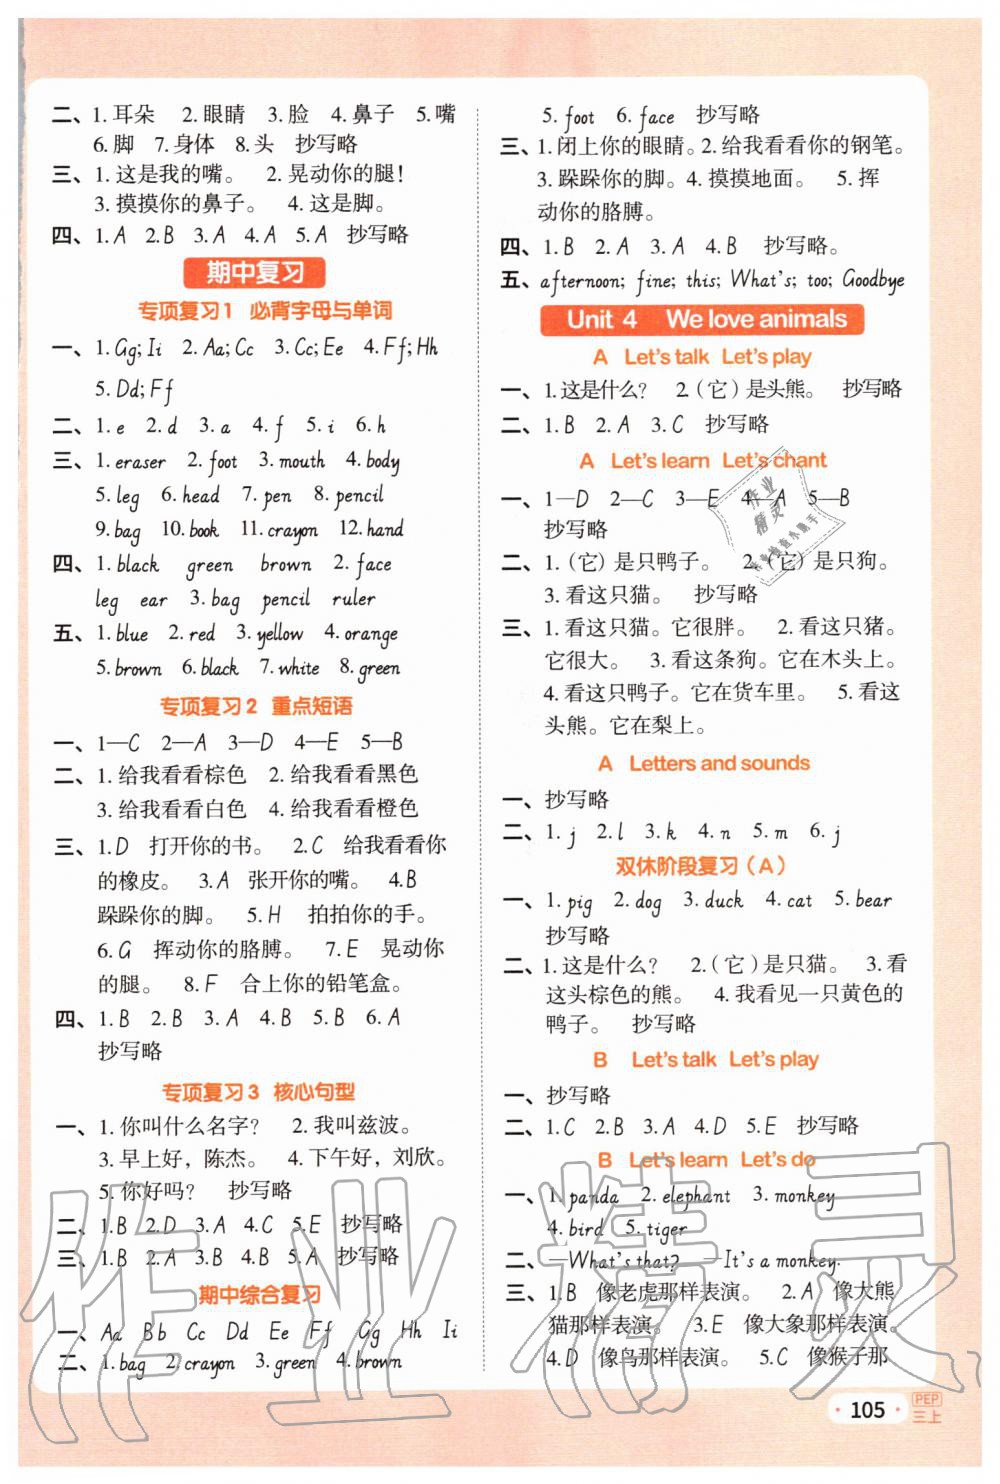 二、1.耳朵 2.眼睛 3.脸 4.鼻子 5.嘴
6.脚 7.身体 8.头 抄写略
三、1.这是我的嘴。 2.晃动你的腿!
3.摸摸你的鼻子。 4.这是脚。
四、1.A 2.B 3.A 4.A 5.A 抄写略
期中复习
专项复习1 必背字母与单词
一、1.Gg; Ii 2.Aa; Cc 3.Cc; Ee 4.Ff; Hh
5.Dd; Ff
二、1.e 2.d 3.a 4.f 5.i 6.h
三、1.eraser 2.foot 3.mouth 4.body
5.leg 6.head 7.pen 8.pencil
9.bag 10.book 11.crayon 12.hand
四、1.black green brown 2.face
leg ear 3.bag pencil ruler
五、1.blue 2.red 3.yellow 4.orange
5.brown 6.black 7.white 8.green
专项复习2 重点短语
一、1—C 2—A 3—D 4—E 5—B
二、1.给我看看棕色 2.给我看看黑色
3.给我看看白色 4.给我看看橙色
三、1.D 打开你的书。 2.C 给我看看你
的橡皮。 3.A 张开你的嘴。 4.B
跺跺你的脚。 5.H 拍拍你的手。
6.G 挥动你的胳膊。 7.E 晃动
你的腿。 8.F 合上你的铅笔盒。
四、1.B 2.B 3.A 4.B 5.B 6.A
抄写略
专项复习3 核心句型
一、1.你叫什么名字? 2.我叫兹波。
3.早上好，陈杰。 4.下午好，刘欣。
5.你好吗? 抄写略
二、1.B 2.D 3.A 4.C 5.E 抄写略
三、1.B 2.A 3.B 4.B 5.A 抄写略
期中综合复习
一、Aa Bb Cc Dd Ee Ff Gg Hh Ii
二、1.bag 2.crayon 3.green 4.brown
5.foot 6.face 抄写略
三、1.闭上你的眼睛。2.给我看看你的钢笔。
3.跺跺你的脚。4.摸摸地面。 5.挥
动你的胳膊。
四、1.B 2.A 3.A 4.B 抄写略。
五、afternoon; fine; this; What's; too; Goodbye
Unit 4 We love animals
A Let's talk Let's play
一、1.这是什么? 2.(它)是头熊。 抄写略
二、1.B 2.A 3.C 抄写略
A Let's learn Let's chant
一、1—D 2—C 3—E 4—A 5—B
抄写略
二、1.(它)是只鸭子。 2.(它)是只狗。
3.看这只猫。 抄写略
三、1.看这只猫。它很胖。 2.看这只猪。
它很大。 3.看这条狗。它在木头上。
4.看这只鸭子。它在货车里。 5.看这
头熊。它在梨上。
A Letters and sounds
一、抄写略
二、1.j 2.l 3.k 4.n 5.m 6.j
双休阶段复习(A)
一、1.pig 2.dog 3.duck 4.cat 5.bear
抄写略
二、1.这是什么? 2.(它)是只猫。 3.看
这头棕色的熊。 4.我看见一只黄色的
鸭子。 抄写略
B Let's talk Let's play
一、抄写略
二、1.C 2.B 3.A 4.D 5.E 抄写略
B Let's learn Let's do
一、1.panda 2.elephant 3.monkey
4.bird 5.tiger
二、—What's that? —It's a monkey.
三、1.B 像老虎那样表演。 2.A 像大熊
猫那样表演。 3.E 像大象那样表演。
4.D 像鸟那样表演。 5.C 像猴子那
· 105 ·
PEP
三上
作业精灵
作业
精灵